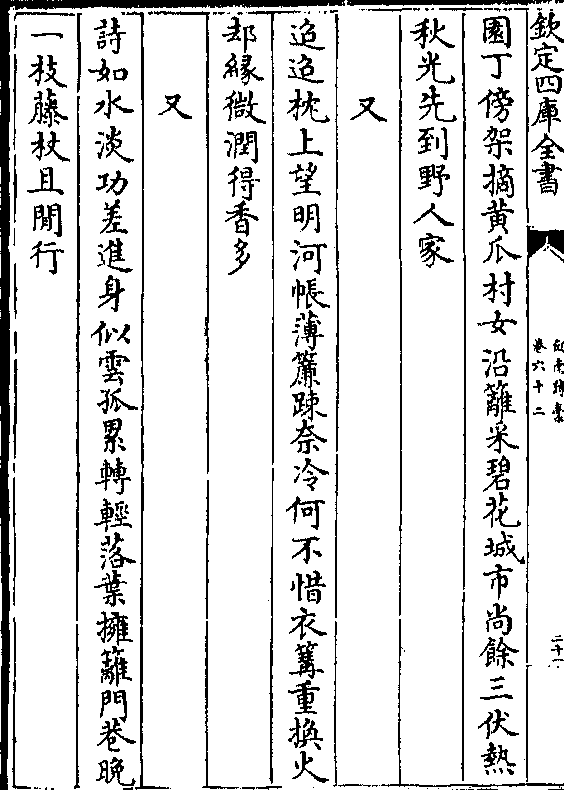 欽定四庫全書
劍南詩稾
卷六十二
園丁傍架摘黄瓜村女沿籬采碧花城市尚餘三伏熱
秋光先到野人家
又
迢迢枕上望明河帳薄簾疎奈冷何不惜衣篝重換火
却縁微潤得香多
又
詩如水淡功差進身似雲孤累轉輕落葉擁籬門巷晚
一枝藤杖且閒行